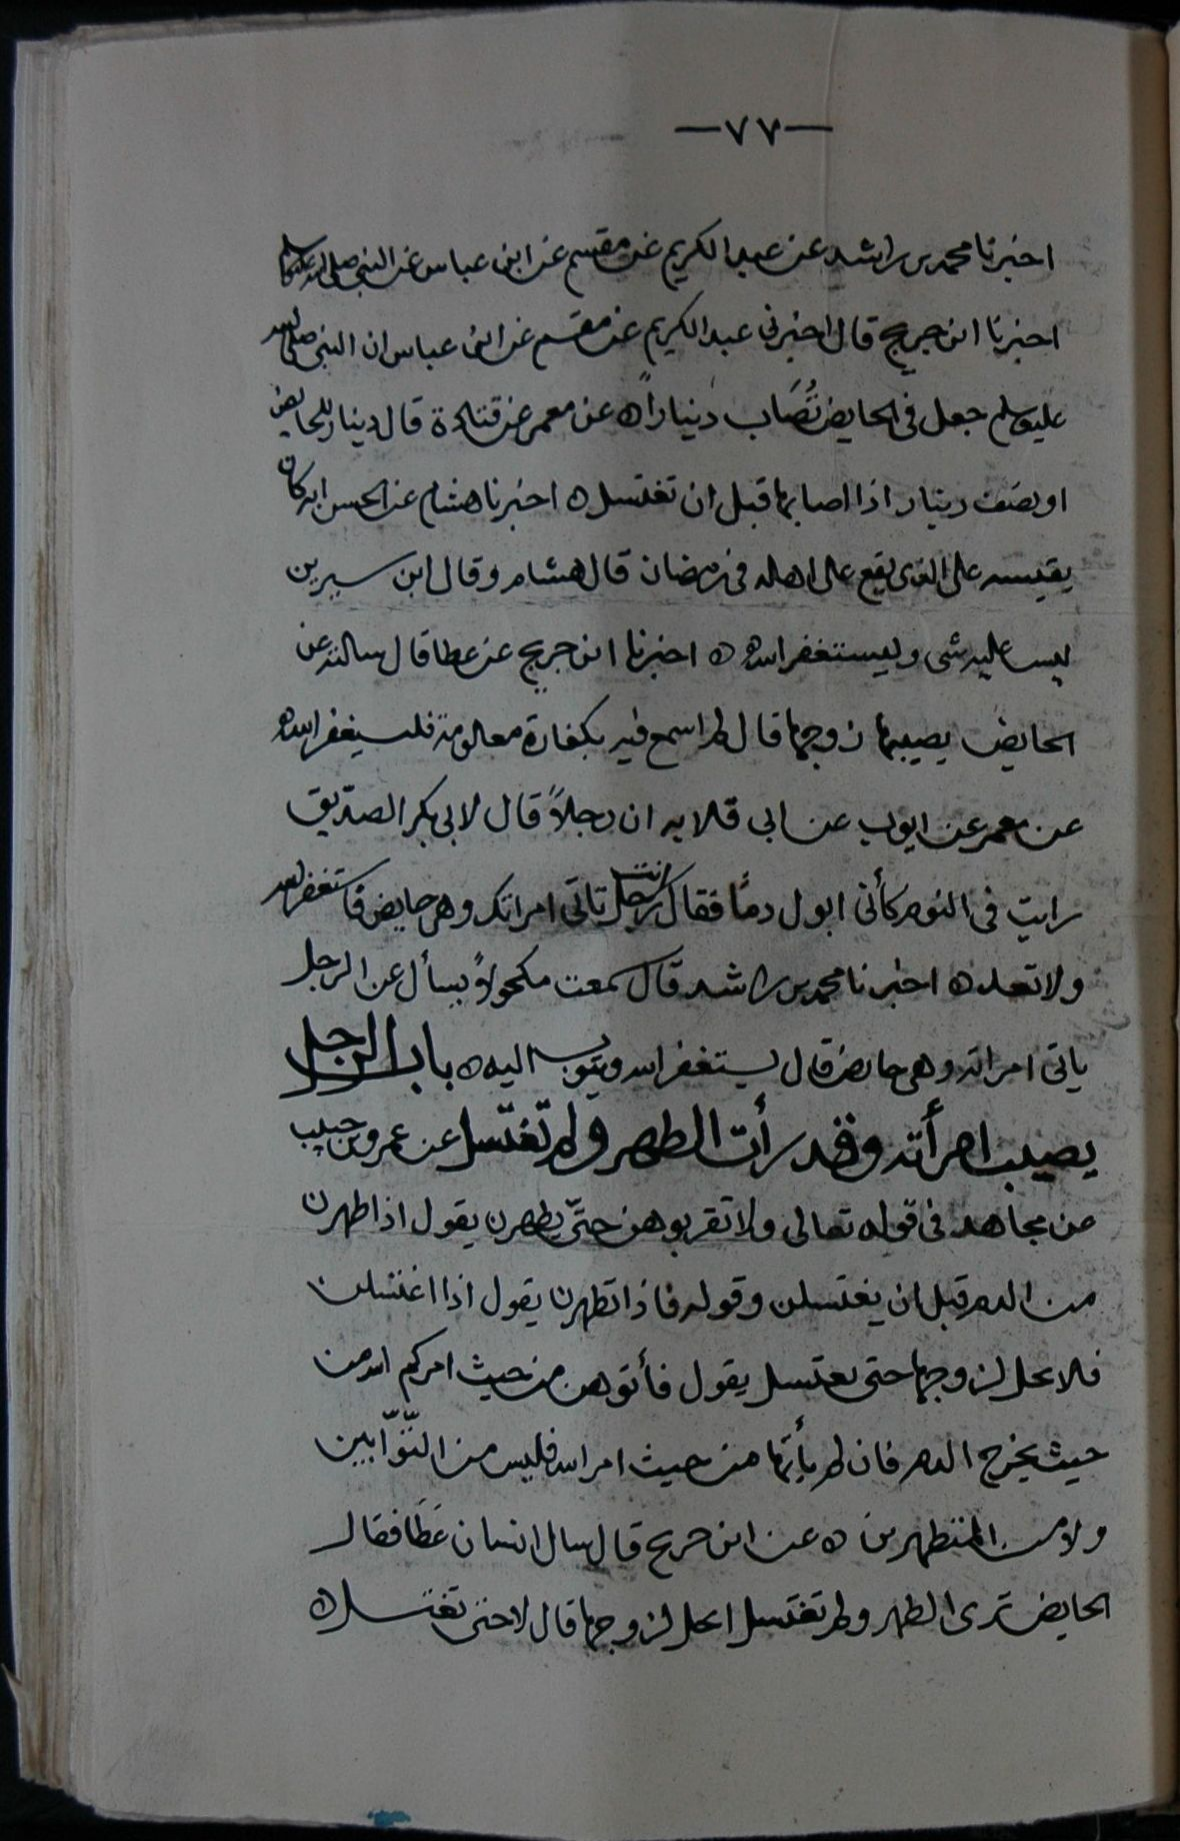 —٧٧—
اخبرنا محمد بن راشد عن عبد الكريم عن مقسم عن ابن عباس عن النبي صلى الله عليه وسلم
اخبرنا ابن جريج قال اخبرني عبد الكريم عن مقسم عن ابن عباس ان النبي صلى الله
عليه وسلم جعل في الحايض تُصَاب ديناراً ه عن معمر عن قتادة قال دينار للحايض
او نصف دينار اذا اصابها قبل ان تغتسل ه اخبرنا هشام عن الحسن انه كان
يقيسه على الذي يقع على اهله في رمضان قال هشام وقال ابن سيرين
ليس عليه شي وليستغفر الله ه اخبرنا ابن جريج عن عطا قال سالته عن
الحايض يصيبها زوجها قال لم اسمع فيه بكفارة معلومة فليستغفر الله ه
عن معمر عن ايوب عن ابى قلابه ان رجلاً قال لابى بكر الصدّيق
رايت في النوم كأنى ابول دمًا فقال انت رجل تاتى امراتك وهى حايض فاستغفر الله
ولا تعد ه اخبرنا محمد بن راشد قال سمعت مكحولاً يسأل عن الرجل
ياتى امراته وهى حايض قال يستغفر الله ويتوب اليه ه باب الرجل
يصيب امرأته وقد رأت الطهر ولم تغتسل عن عمرو بن حبيب
عن مجاهد في قوله تعالى ولا تقربوهن حتّى يطهرن يقول اذا طهرن
من الدم قبل ان يغتسلن وقوله فاذا تطهرن يقول اذا اغتسلن
فلا تحل لزوجها حتى تغتسل يقول فأتوهن من حيث امركم الله من
حيث يخرج الدم فان لم يأتها من حيث امر الله فليس من التّوّابين
ولا من المتطهرين ه عن ابن جريج قال سال انسان عَطَا فقال
الحايض ترى الطهر ولم تغتسل اتحل لزوجها قال لا حتى تغتسل ه